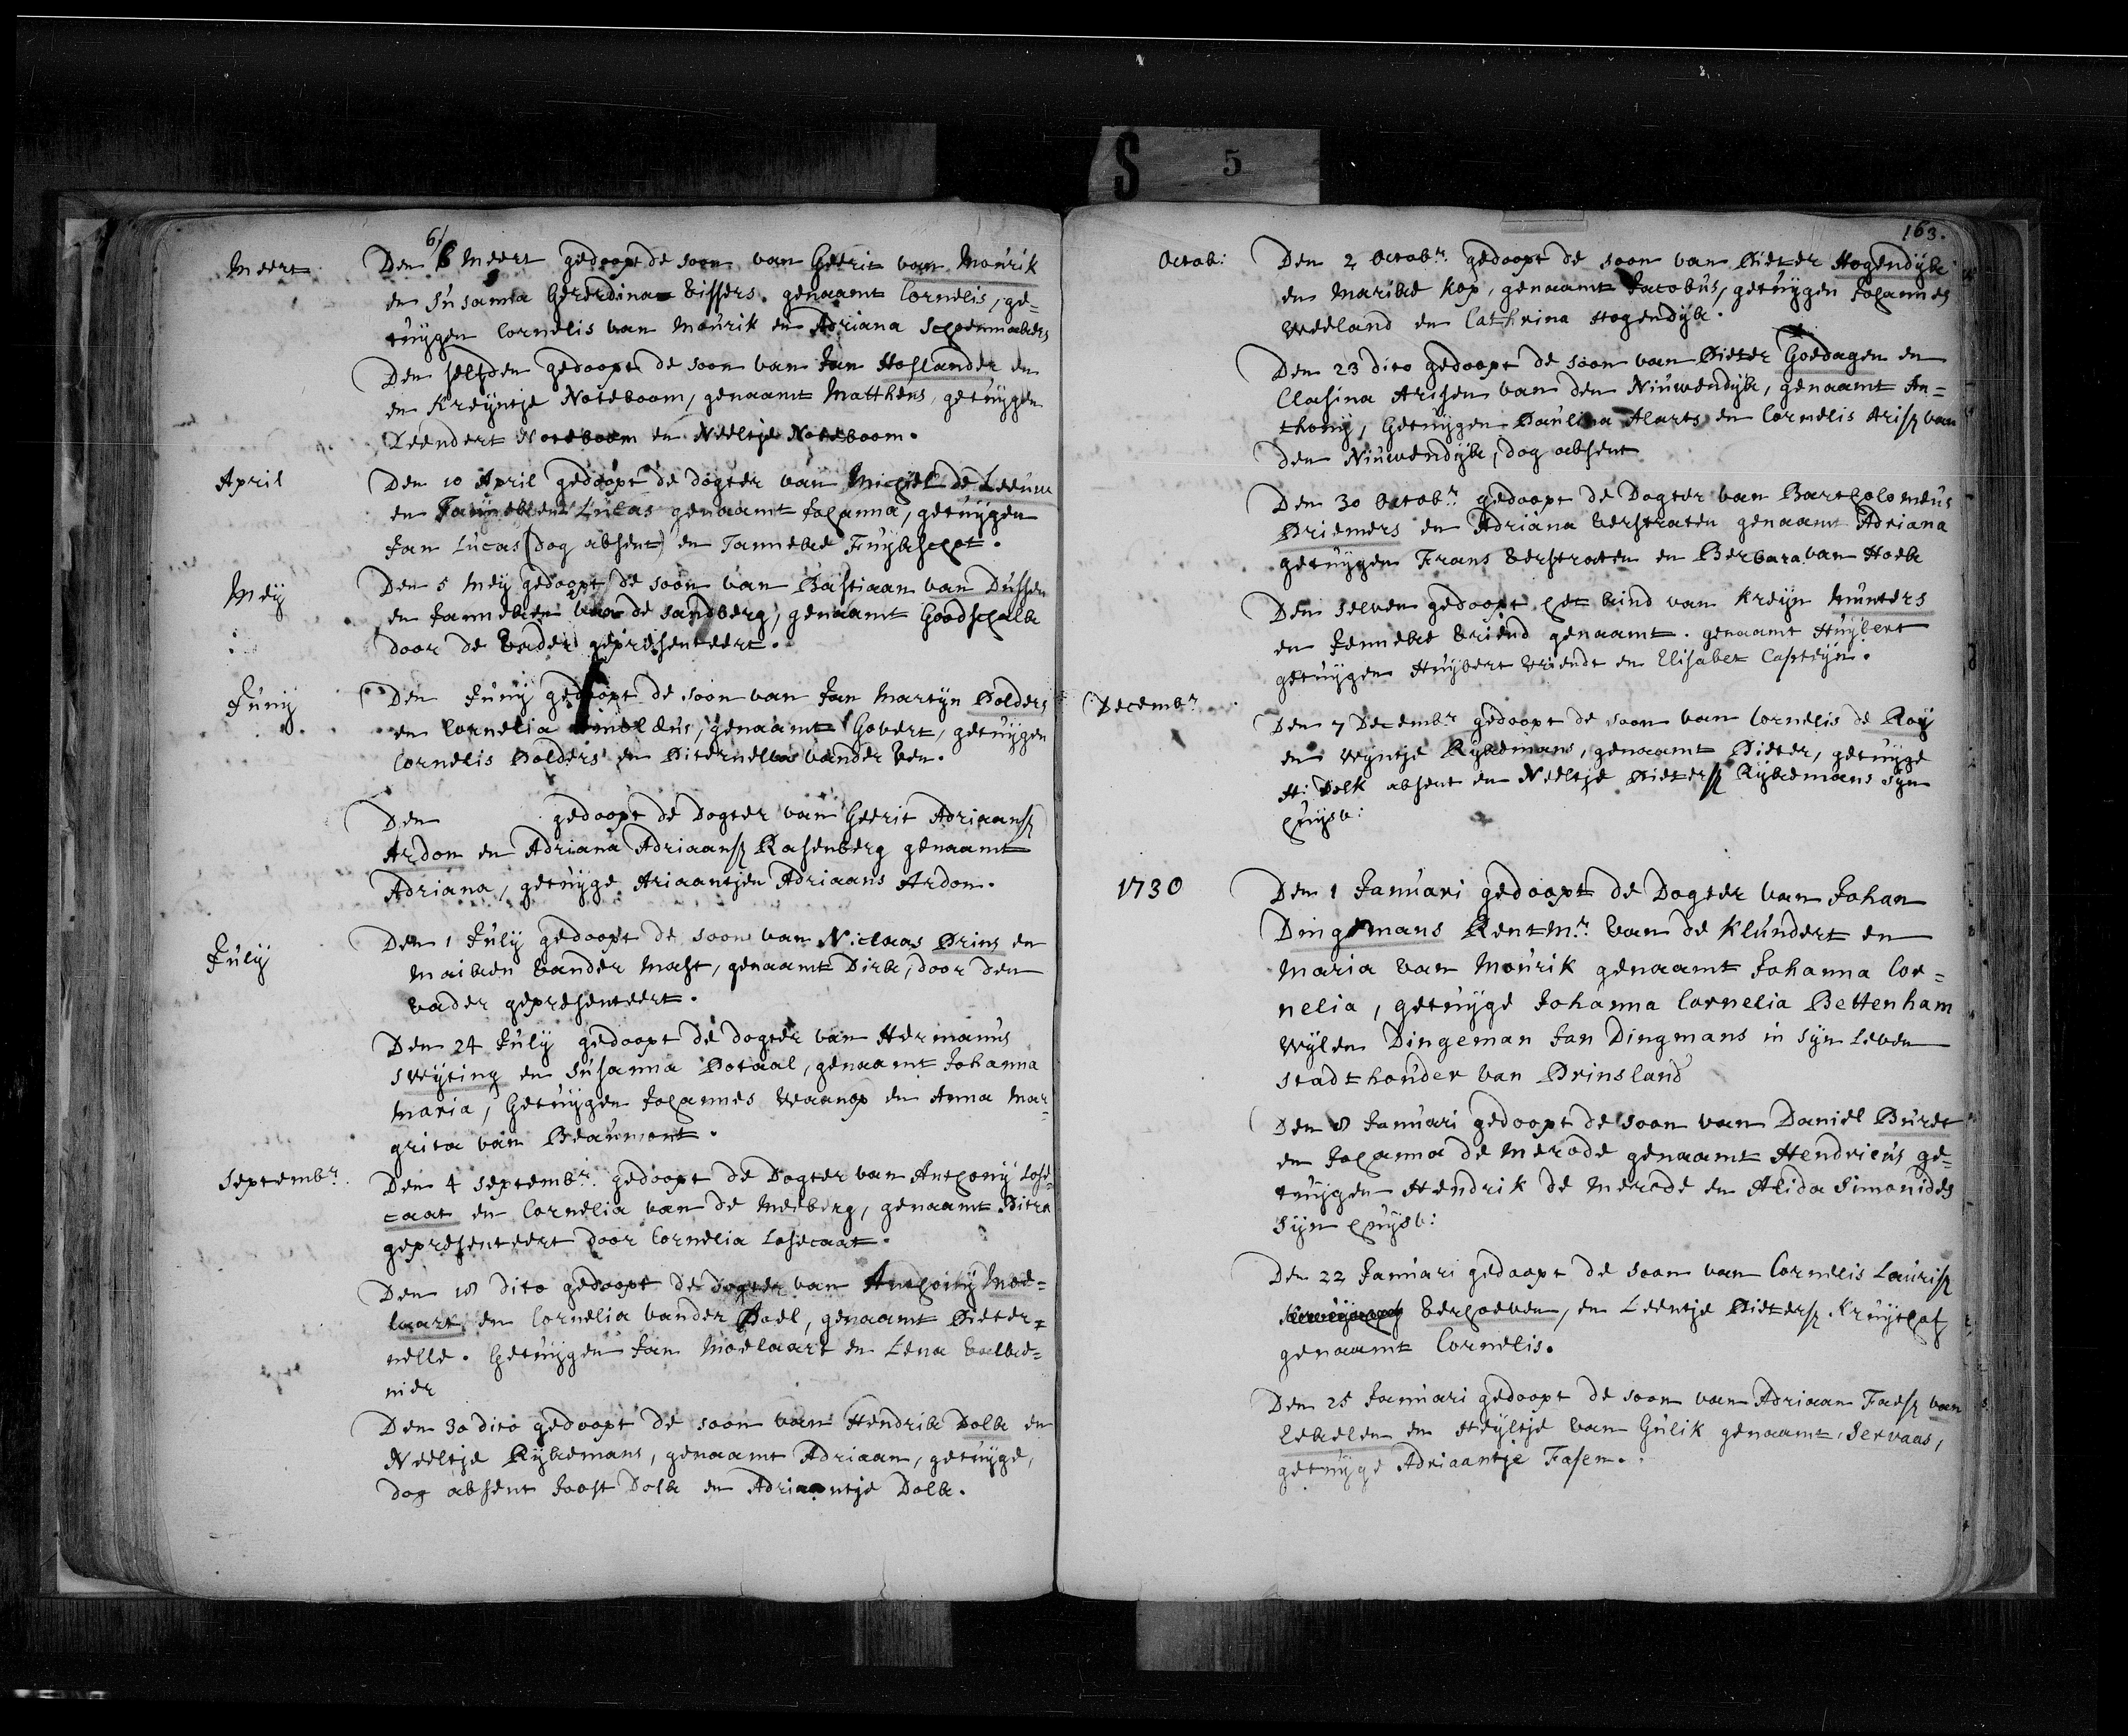 S 5
Meert
Den 6 Meert gedoopt de soon van Geerit van Mourik
en Susanna Gererdina Vissers. genaamt Cornelis, ge-
tuijgen Cornelis van Mourik en Adriana Schoenmakers
Den selfden gedoopt de soon van Jan Hoflander en
en Kreijntje Noteboom, genaamt Mattheus, getuijgen
Leendert Noteboom en Neeltje Noteboom.
April
Den 10 April gedoopt de dogter van Michiel de Leeuw
en Tanneken Lucas genaamt Johanna, getuijgen
Jan Lucas (dog absent) en Tanneke Fuijkschot.
Meij
Den 5 Meij gedoopt de soon van Bastiaan van Dussen
en Janneken van de Sandberg, genaamt Goodschalk
door de Vader gepresenteert.
Junij
Den Junij gedoopt de soon van Jan Martijn Polders
en Cornelia genaamt Govert, getuijgen
Cornelis Polders en Piternella vander Ven.
Den gedoopt de Dogter van Geerit Adriaansz
Ardon en Adriana Adriaansz Rasenberg genaamt
Adriana, getuijge Ariaantjen Adriaans Ardon.
Julij
Den 1 Julij gedoopt de soon van Niclaas Prins en
Maiken vander Mast, genaamt Dirk, door den
Vader gepresenteert.
Den 24 Julij gedoopt de dogter van Hermanus
Sweijting en Susanna Potaal, genaamt Johanna
Maria, Getuijgen Johannes Waanop en Anna Mar-
grita van Beaumont.
Septembr.
Den 4 Septembr. gedoopt de Dogter van Anthonij Lose-
caat en Cornelia van de Meeberg, genaamt Pitra
gepresenteert door Cornelia Losecaat.
Den 18 dito gedoopt de dogter van Anthonij Moe-
laart en Cornelia vander Poel, genaamt Pieter-
nelle. Getuijgen Jan Moelaart en Lena Valke-
nier
Den 30 dito gedoopt de soon van Hendrik Dolk en
Neeltje Rijkemans, genaamt Adriaan, getuijge,
dog absent Joost Dolk en Adriaantje Dolk.
163.
Octob:
Den 2 Octobr. gedoopt de soon van Pieter Hogendijk
en Marike Kop, genaamt Jacobus, getuijgen Johannes
Weeland en Cathrina Hogendijk.
Den 23 dito gedoopt de soon van Pieter Goedagen en
Clasina Arisen van den Niuwendijk, genaamt An-
thonij, Getuijgen Paulina Alarts en Cornelis Arisz van
den Niuwendijk, dog absent
Den 30 Octobr. gedoopt de Dogter van Bartholomeus
Priemers en Adriana Verstraten genaamt Adriana
getuijgen Frans Verstraten en Berbara van Hoek
Den selven gedoopt het kind van Kreijn Munters
en Jenneke Vriend genaamt. genaamt Huijbert
getuijgen Huijbert Vriendt en Elisabet Casteijn.
Decembr.
Den 7 Decembr. gedoopt de soon van Cornelis de Roij
en Wijntje Rijkemans, genaamt Pieter, getuijge
H: Dolk absent en Neeltje Pietersz Rijkemans sijn
huijsv:
1730
Den 1 Januari gedoopt de Dogter van Johan
Dingemans Rentmr. van de Klundert en
Maria van Mourik genaamt Johanna Cor-
nelia, getuijge Johanna Cornelia Bettenham
Wijlen Dingeman Jan Dingmans in sijn Leven
stadthouder van Prinsland
Den 8 Januari gedoopt de soon van Daniel Buret
en Johanna de Merode genaamt Hendricus ge-
tuijgen Hendrik de Merode en Alida Simonides
sijn huijsv:
Den 22 Januari gedoopt de soon van Cornelis Laurisz
Verhoeven, en Leentje Pietersz Kruijthof
genaamt Cornelis.
Den 25 Januari gedoopt de soon van Adriaan Faesz van
Eekelen en Heijltje van Gulik genaamt, Servaas,
getuijge Adriaantje Fasen.